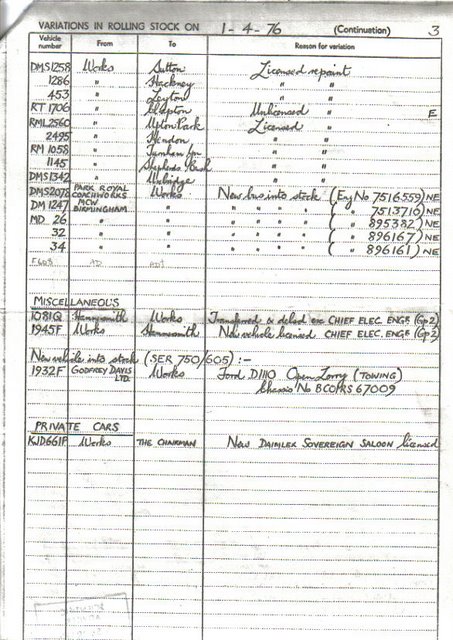 VARIATIONS IN ROLLING STOCK ON 1-4-76 (Continuation) 3
Vehicle number From To Reason for variation
DMS1258 Works Sutton Licensed repaint
1286 " Hackney " "
453 " Leyton " "
RT 1706 " Clapton Unlicensed " E
RML2560 " Upton Park Licensed "
2495 " Hendon " "
RM 1058 " Turnham Gn " "
1145 " Shepherds Bush " "
DMS1342 " Uxbridge " "
DMS2078 PARK ROYAL COACHWORKS Works New bus into stock (Eng No 7516559) NE
DM 1247 MCW BIRMINGHAM " " " " " ( " 7513710) NE
MD 26 " " " " " " ( " 895382) NE
32 " " " " " " ( " 896167) NE
34 " " " " " " ( " 896161) NE
MISCELLANEOUS
1081Q Hammersmith Works Transferred & delsd exc CHIEF ELEC. ENGR (Gp 2)
1945F Works Hammersmith New vehicle licensed CHIEF ELEC. ENGR (Gp 2)
New vehicle into stock (SER 750/605) :-
1932F GODFREY DAVIS LTD. Works Ford D1110 Open Lorry (TOWING)
Chassis No BCOPRS 67009
PRIVATE CARS
KJD661P Works THE CHAIRMAN New DAIMLER SOVEREIGN SALOON licensed